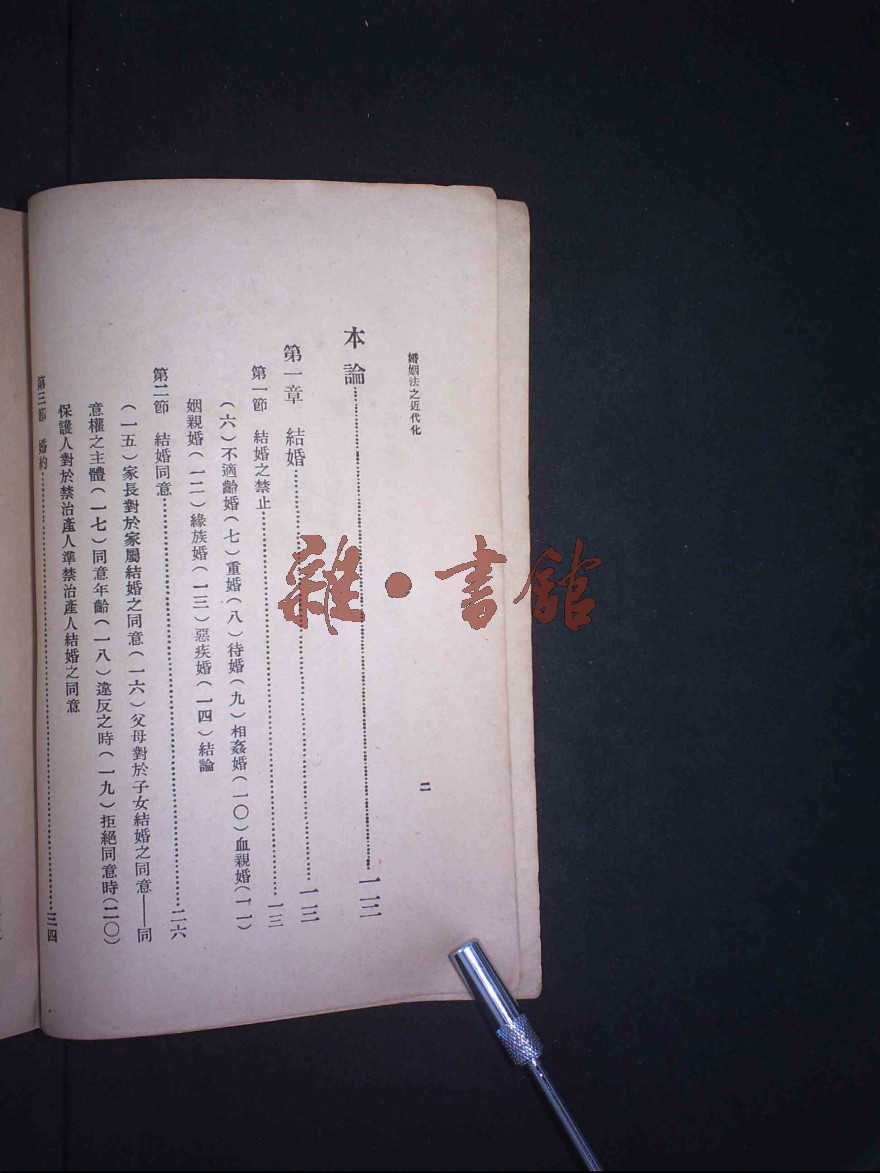 婚姻法之近代化
二
本論……一三
第一章 結婚……一三
第一節 結婚之禁止……一三
（六）不適齡婚（七）重婚（八）待婚（九）相姦婚（一〇）血親婚（一一）
姻親婚（一二）緣族婚（一三）惡疾婚（一四）結論
第二節 結婚同意……二六
（一五）家長對於家屬結婚之同意（一六）父母對於子女結婚之同意——同
意權之主體（一七）同意年齡（一八）違反之時（一九）拒絕同意時（二〇）
保護人對於禁治產人準禁治產人結婚之同意
第三節 婚約……三四
雜·書館